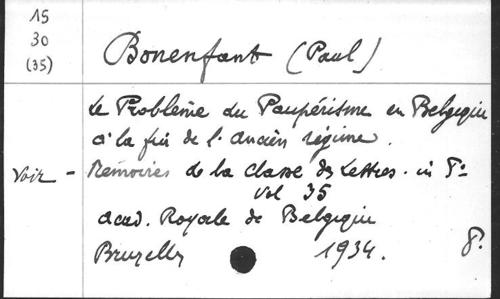 15
30
(35)
Bonenfant (Paul)
Le Problème du Paupérisme en Belgique
à la fin de l'ancien régime.
Voir - Mémoires de la Classe des Lettres. in 8°
Vol 35
Acad. Royale de Belgique
Bruxelles 1934. 8°.